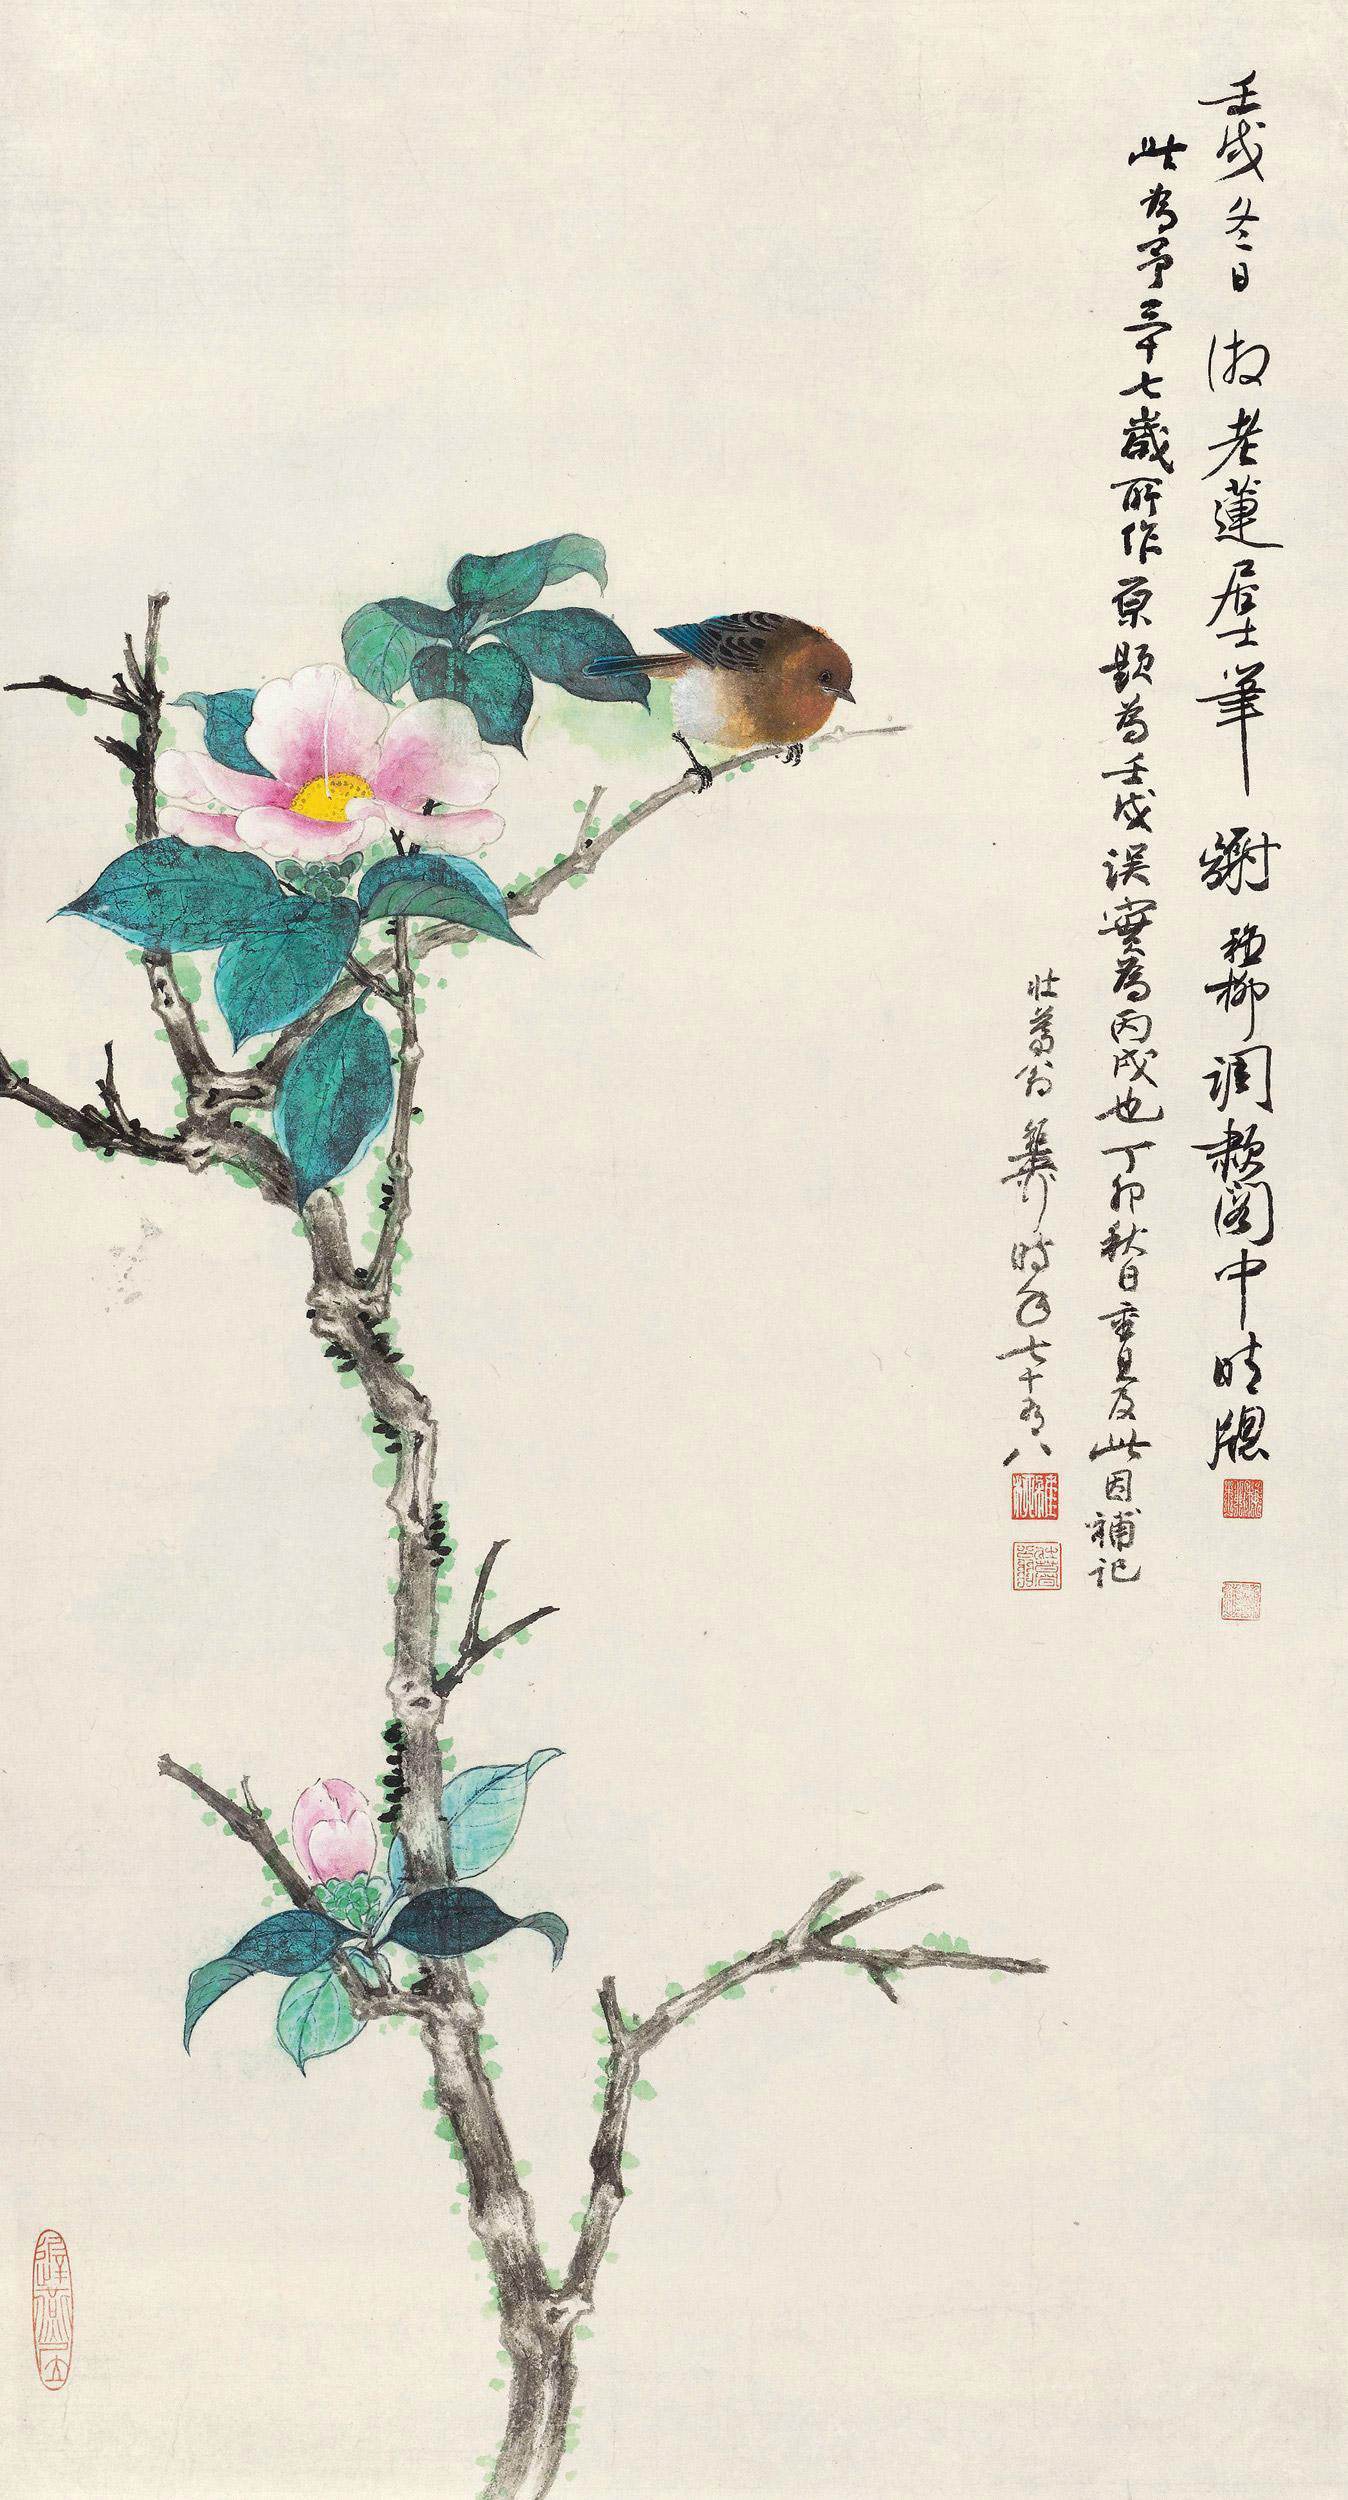 壬戌冬日 仿老蓮居士筆 謝稚柳調歗閣中晴牕
此為予三十七歲所作原題為壬戌誤實為丙戌也丁卯秋日重見及此因補記
壯暮翁稚柳時年七十有八